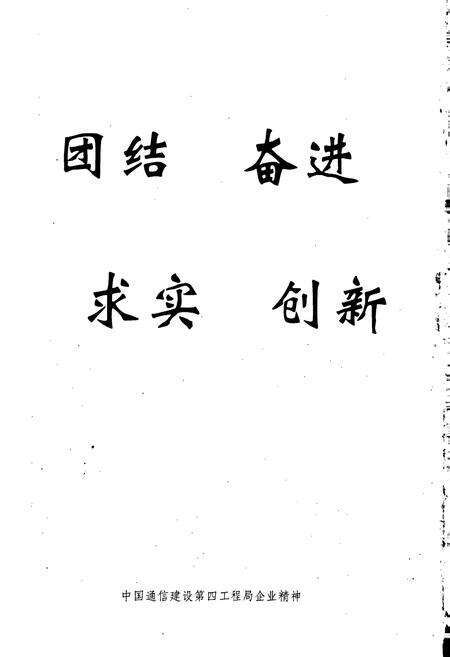 团结 奋进
求实 创新
中国通信建设第四工程局企业精神